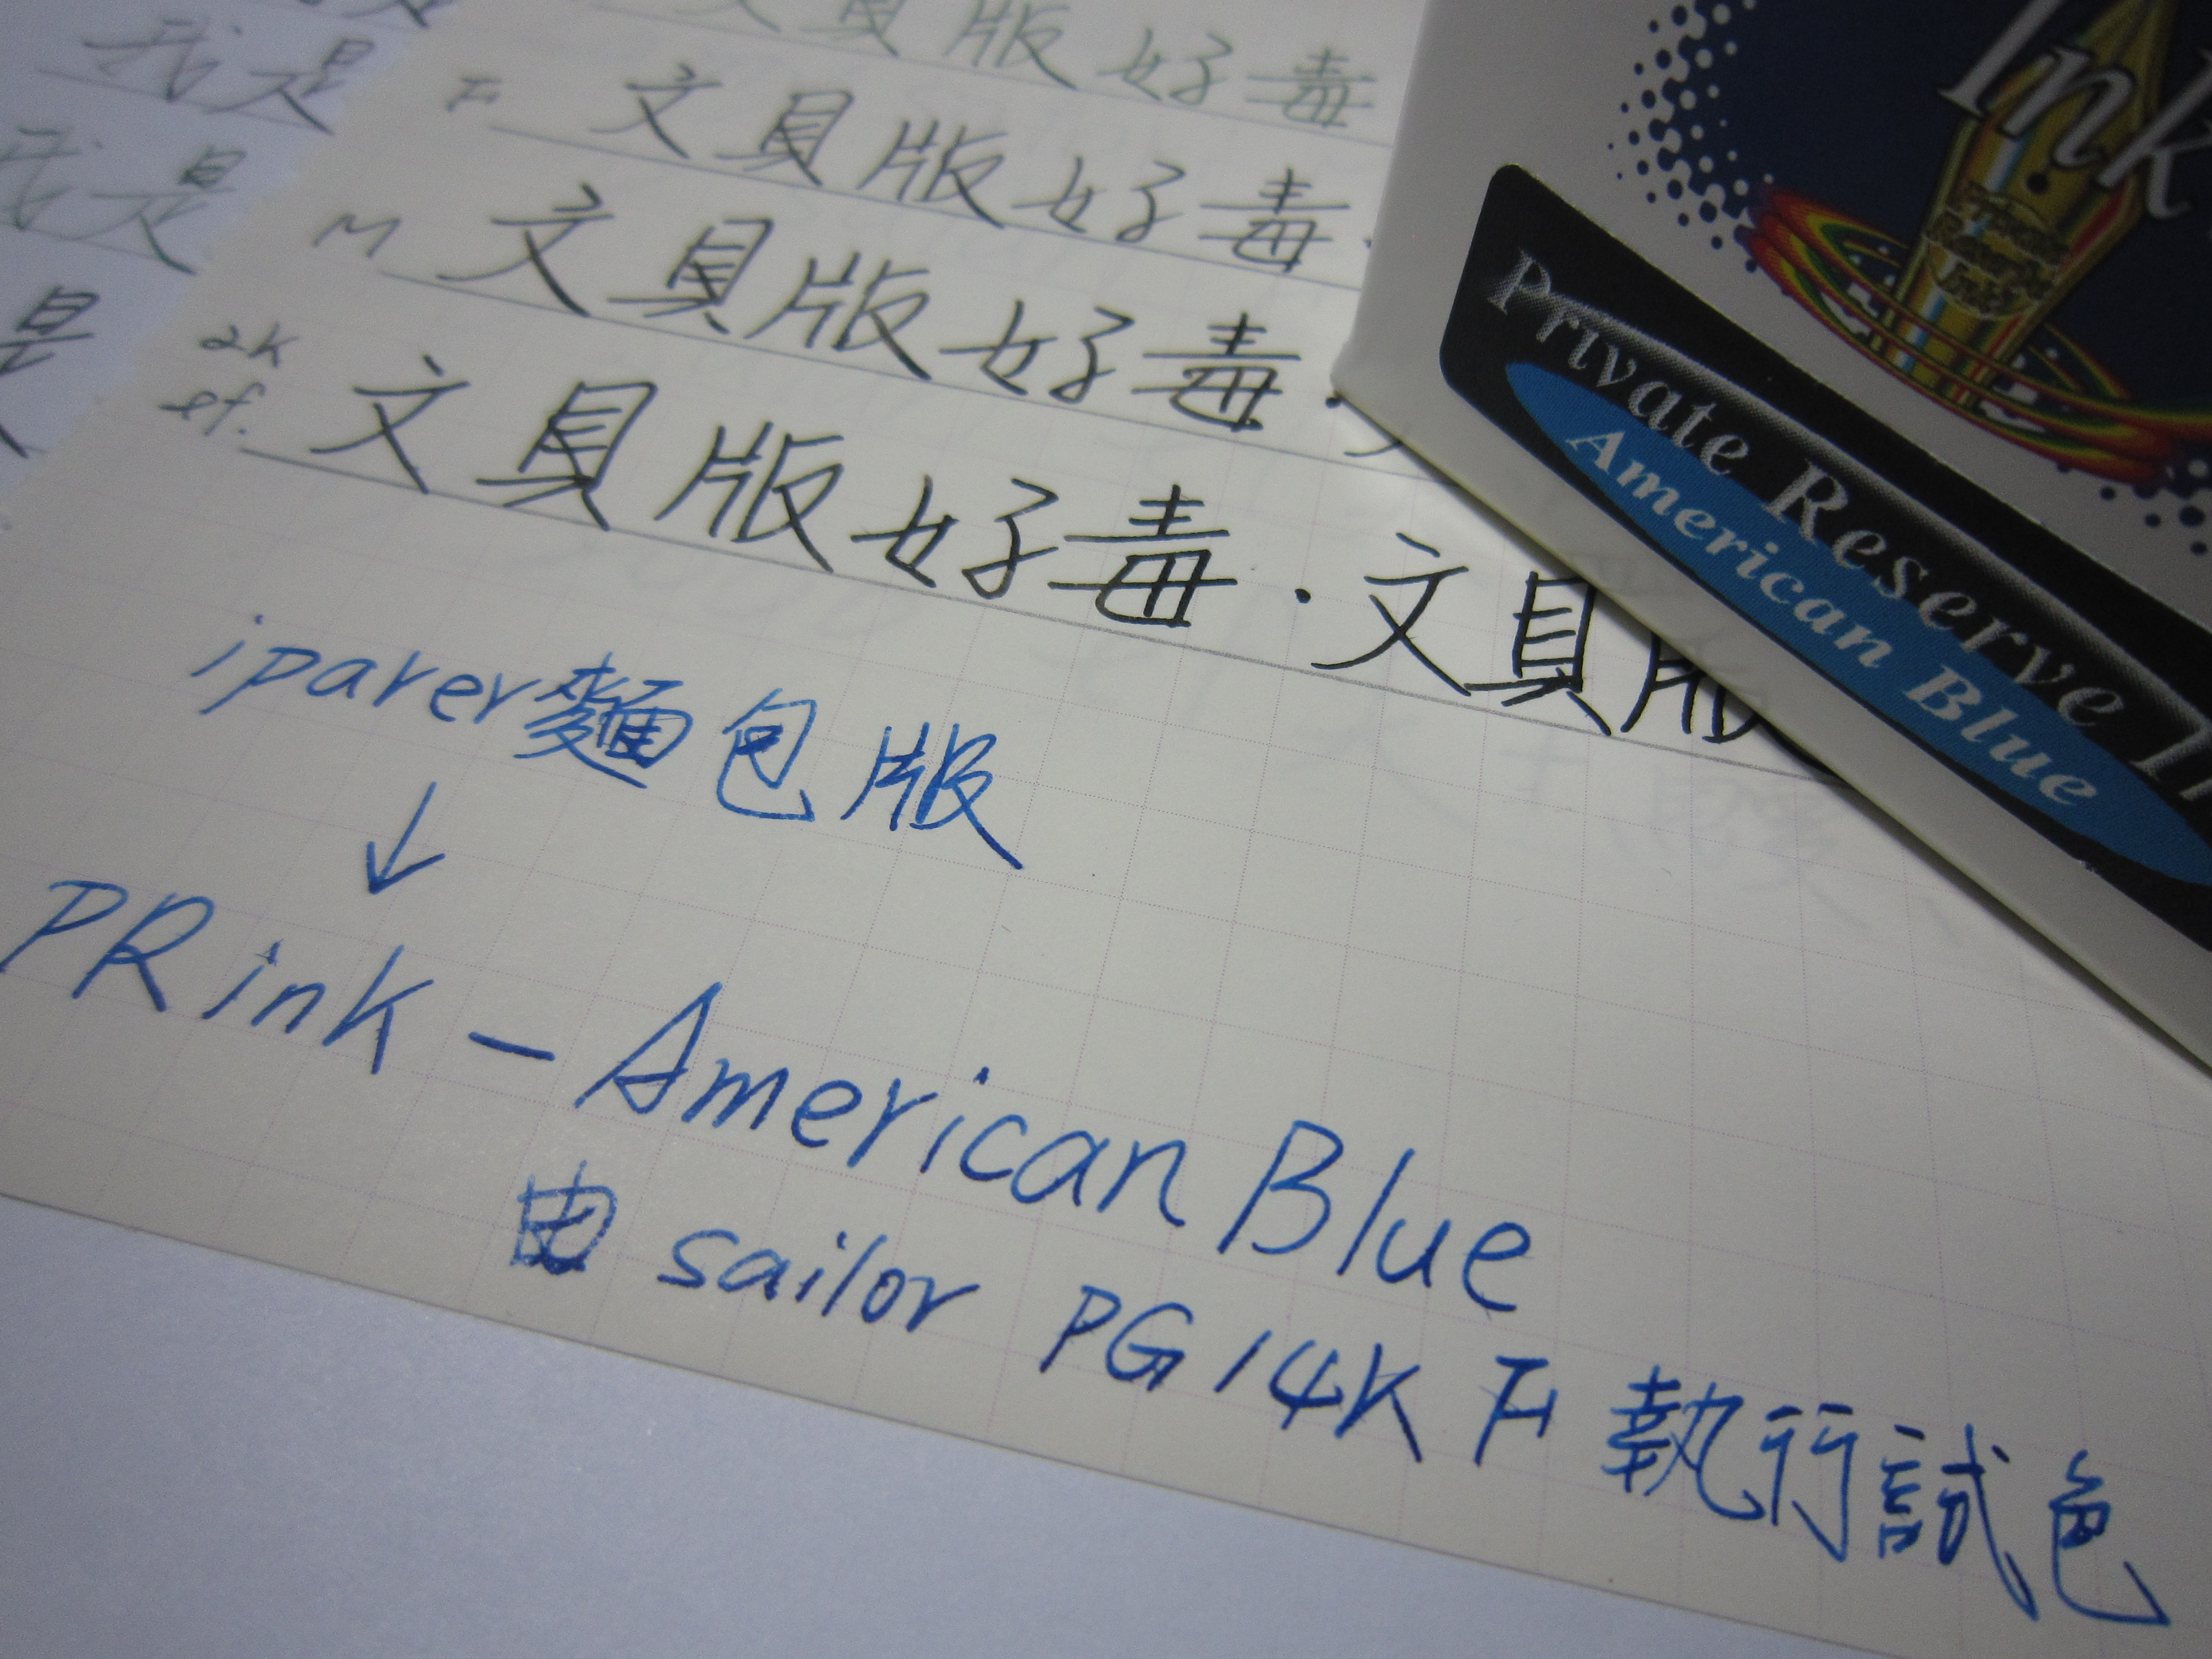 我是
我是
是
文具版好毒
F 文具版好毒.
M 文具版好毒.
ef. 文具版好毒.文具版
iparer麵包版
↓
PR ink - American Blue
由 sailor PG 14K F 執行試色
Ink
Private Reserve
American Blue